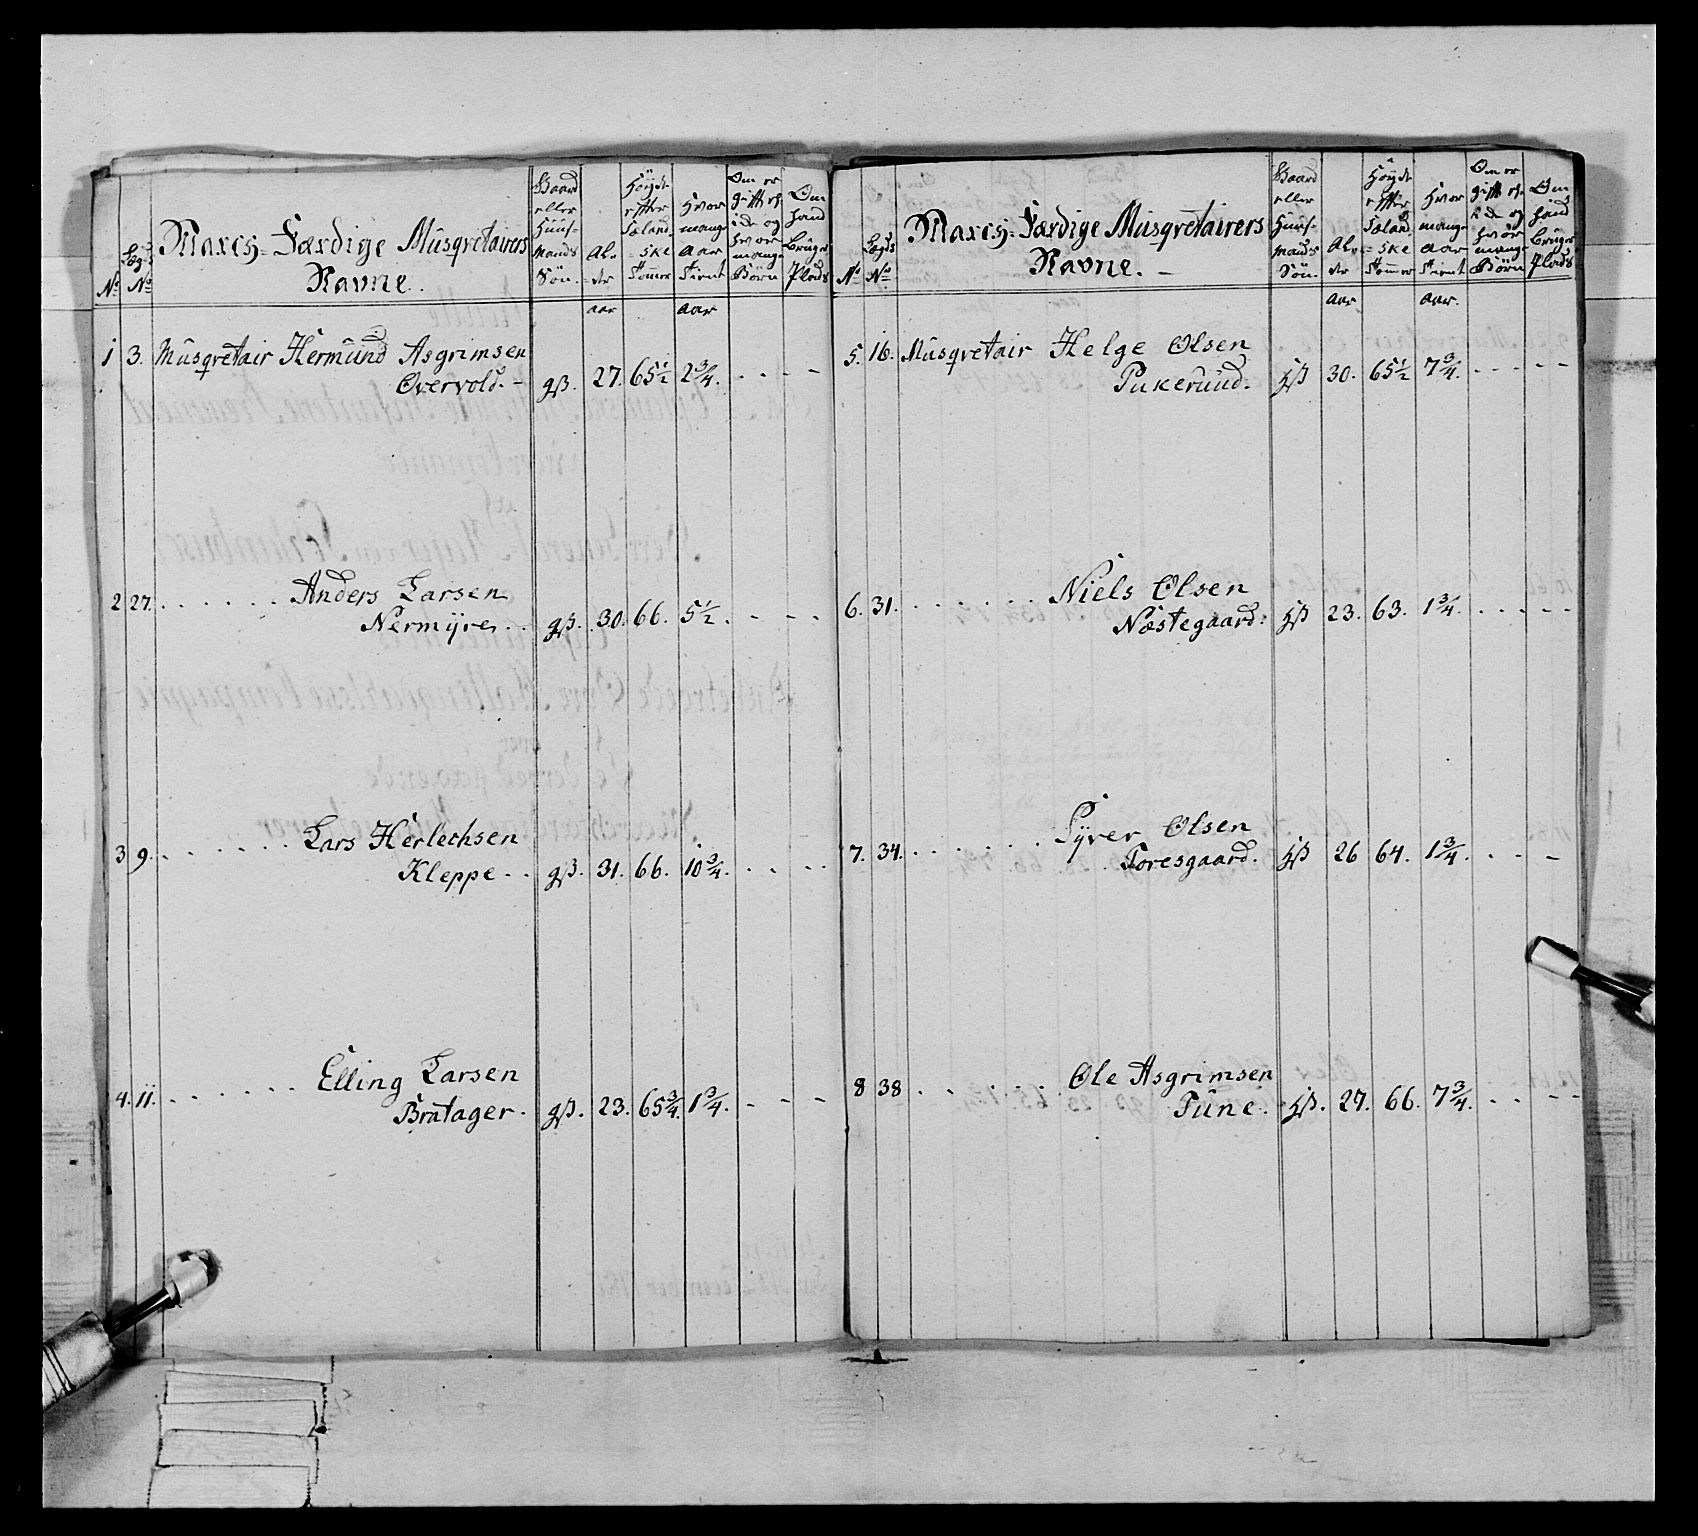 No
Lægs No
March-Færdige Musqvetairers
Navne.
Gaard eller Huus-mands Søn.
Al-der
Høyde efter Sæland-ske Tommer
Hvor mange Aar tient
Om er gift etc. ide og hvor mange Børn
Om hand bruger Plads
aar aar
1 3. Musqvetair Hermund Asgrimsen
Overvold. gß. 27. 65½ 2¾. - - - -
2 27. Anders Larsen
Nermyre. gß. 30. 66. 5½. - - - -
3 9. Lars Herlechsen
Kleppe. gß. 31. 66. 10¾. - - - -
4. 11. Elling Larsen
Bratager. gß. 23. 65¾ 1¾. - - -
No
Lægds No
March-Færdige Musqvetairers
Navne.
Gaard eller Huus-mands Søn.
Al-der
Høyde efter Sæland-ske Tommer
Hvor mange Aar tient
Om er gift etc. ide og hvor mange Børn
Om hand bruger Plads
aar aar.
5. 16. Musqvetair Helge Olsen
Pukerüud. gß 30. 65½ 7¾. - - - -
6. 31. Niels Olsen
Næstegaard. gß 23. 63. 1¾. - - - -
7. 34. Syver Olsen
Toresgaard. gß 26 64. 1¾. - - -
8 38 Ole Asgrimsen
Tune. gß. 27. 66. 7¾. - - - -